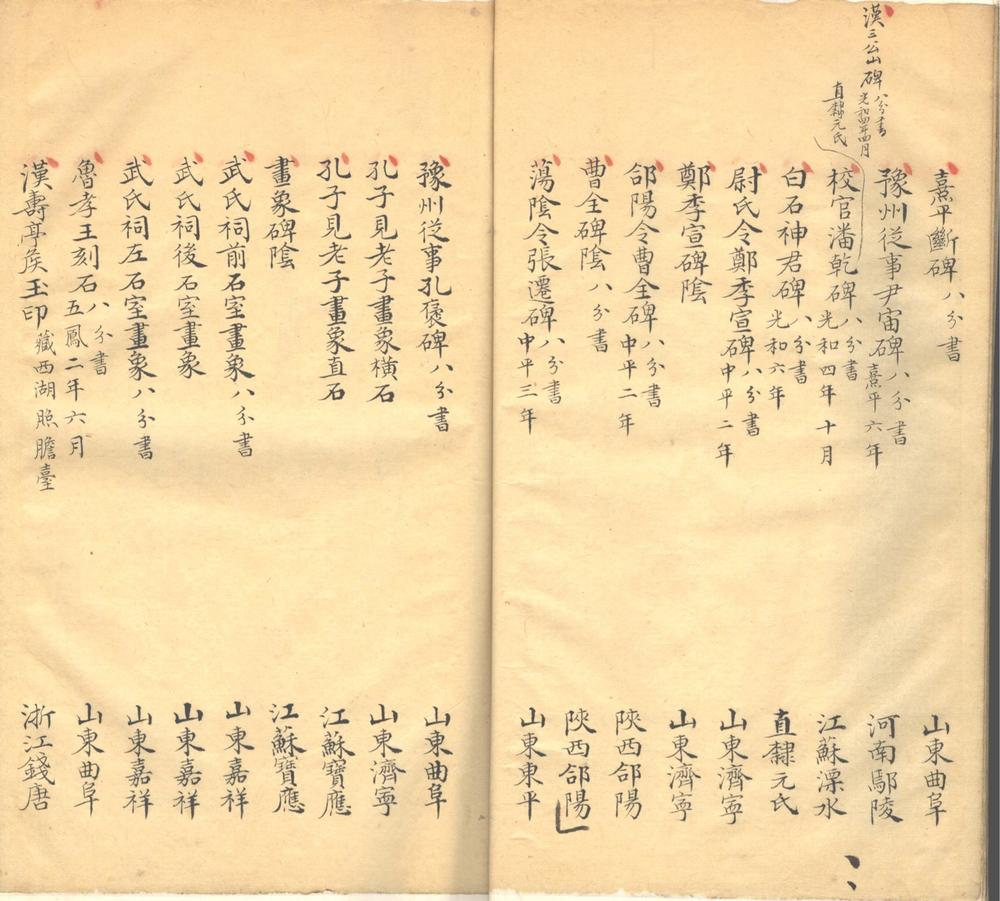 熹平斷碑八分書 山東曲阜
豫州從事尹宙碑八分書熹平六年 河南鄢陵
漢三公山碑八分書光和四年四月 直隸元氏
校官潘乾碑八分書光和四年十月 江蘇溧水
白石神君碑八分書光和六年 直隸元氏
尉氏令鄭季宣碑八分書中平二年 山東濟寧
鄭季宣碑陰 山東濟寧
郃陽令曹全碑八分書中平二年 陝西郃陽
曹全碑陰八分書 陝西郃陽
蕩陰令張遷碑八分書中平三年 山東東平
豫州從事孔褒碑八分書 山東曲阜
孔子見老子畫象橫石 山東濟寧
孔子見老子畫象直石 江蘇寶應
畫象碑陰 江蘇寶應
武氏祠前石室畫象八分書 山東嘉祥
武氏祠後石室畫象 山東嘉祥
武氏祠左石室畫象八分書 山東嘉祥
魯孝王刻石八分書五鳳二年六月 山東曲阜
漢壽亭矦玉印藏西湖照膽臺 浙江錢唐